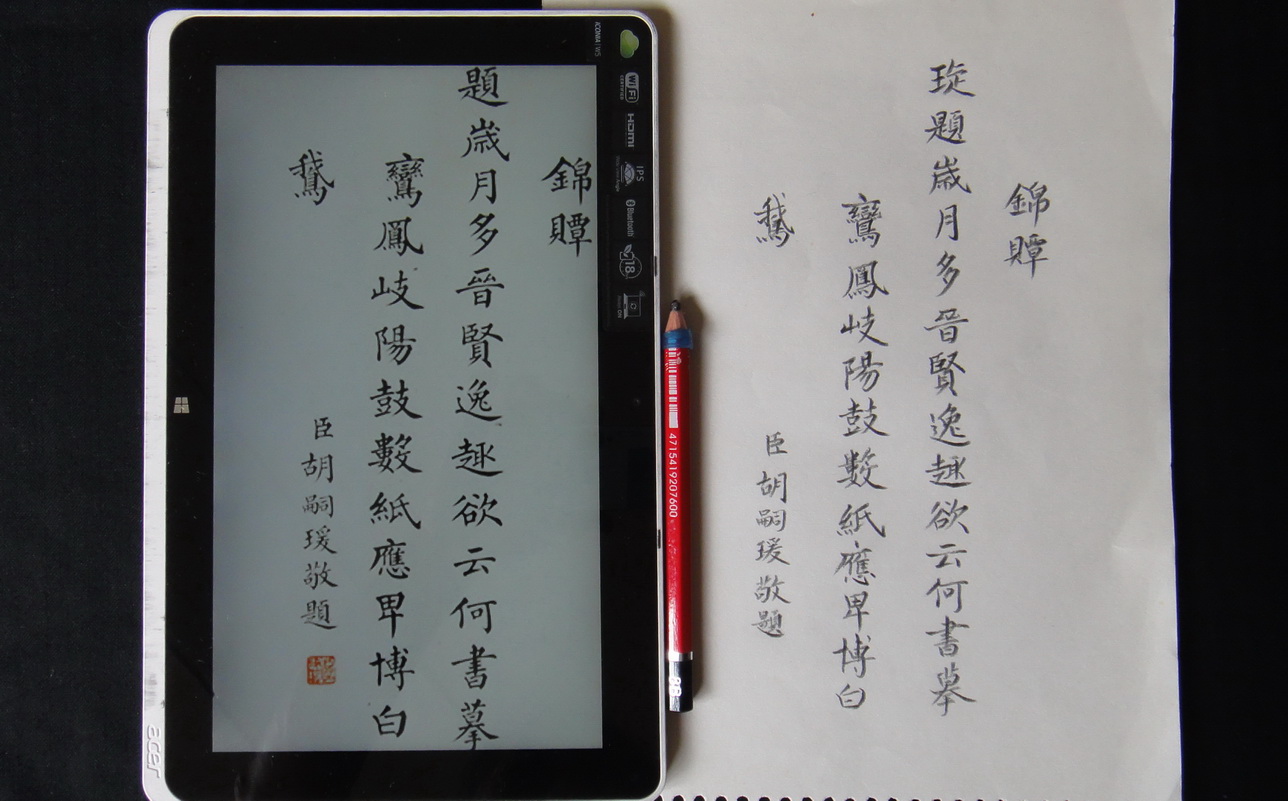 錦贉
題歲月多晉賢逸趣欲云何書摹
鸞鳳岐陽鼓數紙應卑博白
鵝
臣胡嗣瑗敬題
ICONIA W5
Wi Fi
CERTIFIED
HDMI
IPS
Bluetooth
18
acer
4715419207600
錦贉
琁題歲月多晉賢逸趣欲云何書摹
鸞鳳岐陽鼓數紙應卑博白
鵝
臣胡嗣瑗敬題